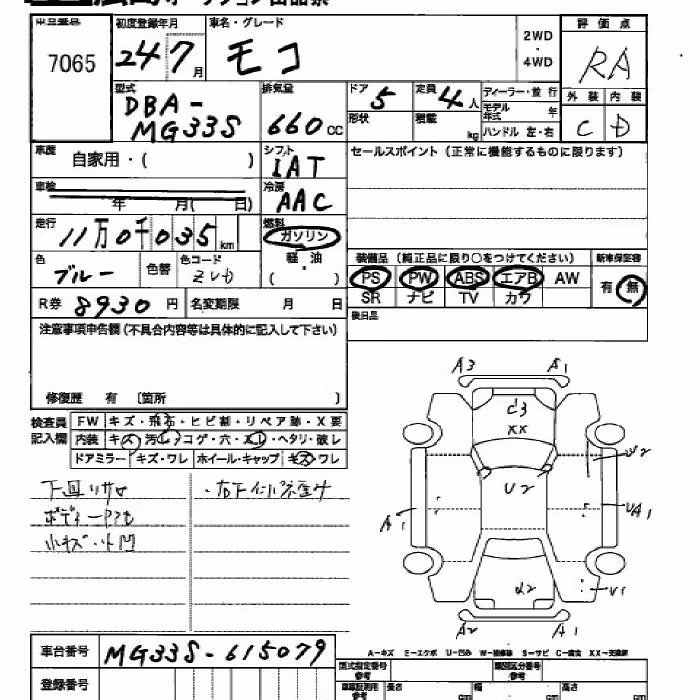 出品番号 初度登録年月 車名・グレード 評価点
7065 24 7月 モコ 2WD・4WD RA
型式 排気量 ドア 定員 ディーラー・並行 外装 内装
DBA-MG33S 660cc 5 4人 モデル年式 年 C D
形状 積載 kg ハンドル 左・右
車歴 自家用・( ) シフト IAT セールスポイント(正常に機能するものに限ります)
車検 年 月( 日) 冷房 AAC
走行 11万0千035km 燃料 ガソリン
軽油
( )
色 ブルー 色替 色コード ZVD
装備品(純正品に限り○をつけてください) 新車保証書
PS PW ABS エアB AW 有・無
SR ナビ TV カワ
R券 8930円 名変期限 月 日 後日品
注意事項申告欄(不具合内容等は具体的に記入して下さい)
修復歴 有 〔箇所 〕
検査員記入欄
FW キズ・飛石・ヒビ割・リペア跡・X要
内装 キズ・汚レ・コゲ・穴・スレ・ヘタリ・破レ
ドアミラー キズ・ワレ ホイール・キャップ キズ・ワレ
下廻りサビ
ボディー
小キズ・小凹
A3 A1
C3
XX
U2
U2
A1
UA1
A2
U1
A2 A1
車台番号 MG33S-615079
A-キズ E-エクボ U-凹み W-補修跡 S-サビ C-腐食 XX-交換跡
登録番号
型式指定番号 参考 類別区分番号 参考
車庫証明用 参考 長さ cm 幅 cm 高さ cm